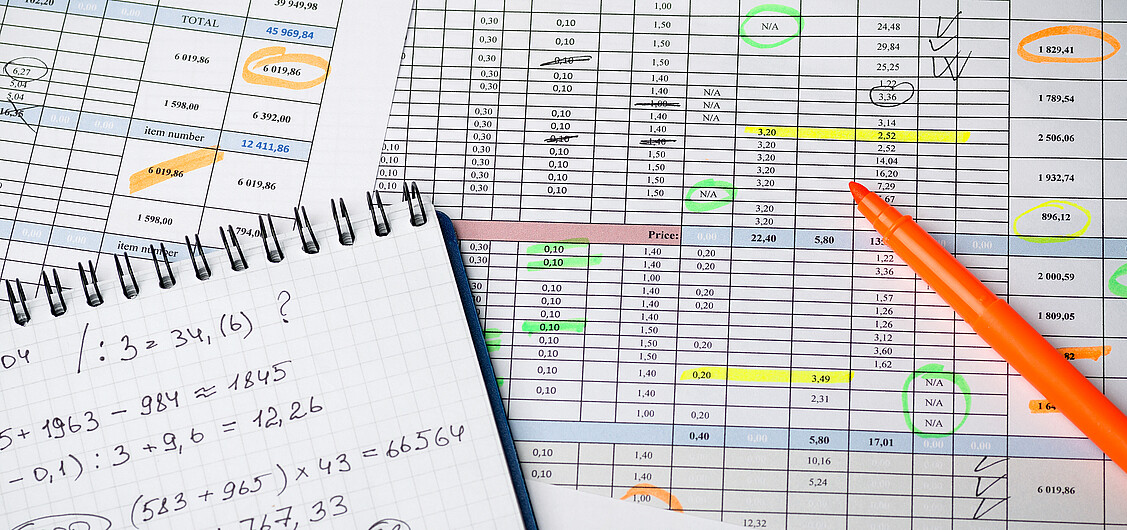 102,20 0,00 0,00 39 949,98
TOTAL 45 969,84
6 019,86 6 019,86
6,27
5,04
5,04
1 598,00 6 392,00
16,35 0,00 0,00 item number 12 411,86
6 019,86 6 019,86
1 598,00 794,00
0,00 0,00 item number
04 / : 3 = 34,(6) ?
5 + 1963 - 984 ≈ 1845
- 0,1) : 3 + 9,6 = 12,26
(583 + 965) × 43 = 66564
767, 33
1,00
0,30 0,10 1,50 N/A 24,48
0,30 0,10 1,50 29,84 1 829,41
0,30 0,10 1,50 25,25
0,30 0,10 1,40 1,22
0,30 0,10 1,40 N/A 3,36 1 789,54
1,00 N/A
0,30 0,10 1,40 N/A 3,14
0,30 0,10 1,40 3,20 2,52 2 506,06
0,30 0,10 1,40 3,20 2,52
0,10 0,30 0,10 1,50 3,20 14,04
0,10 0,30 0,10 1,50 3,20 16,20 1 932,74
0,10 0,30 0,10 1,50 3,20 7,29
0,10 0,30 0,10 1,50 N/A
3,20
3,20 896,12
Price: 0,00 22,40 5,80 0,00
0,30 0,10 1,40 0,20 1,22
0,30 0,10 1,40 0,20 3,36 2 000,59
1,00
0,10 1,40 0,20 1,57
0,10 1,40 0,20 1,26 1 809,05
0,10 1,50 1,26
0,10 1,50 3,12
0,10 1,50 0,20 3,60 82
0,10 1,50 1,62
0,10 1,40 0,20 3,49 N/A
0,10 1,40 2,31 N/A 1 64
0,10 1,00 0,20 N/A
0,40 0,00 5,80 17,01 0,00 0,00
0,10 1,40 10,16
0,10 1,40 5,24 6 019,86
1,00
12,32